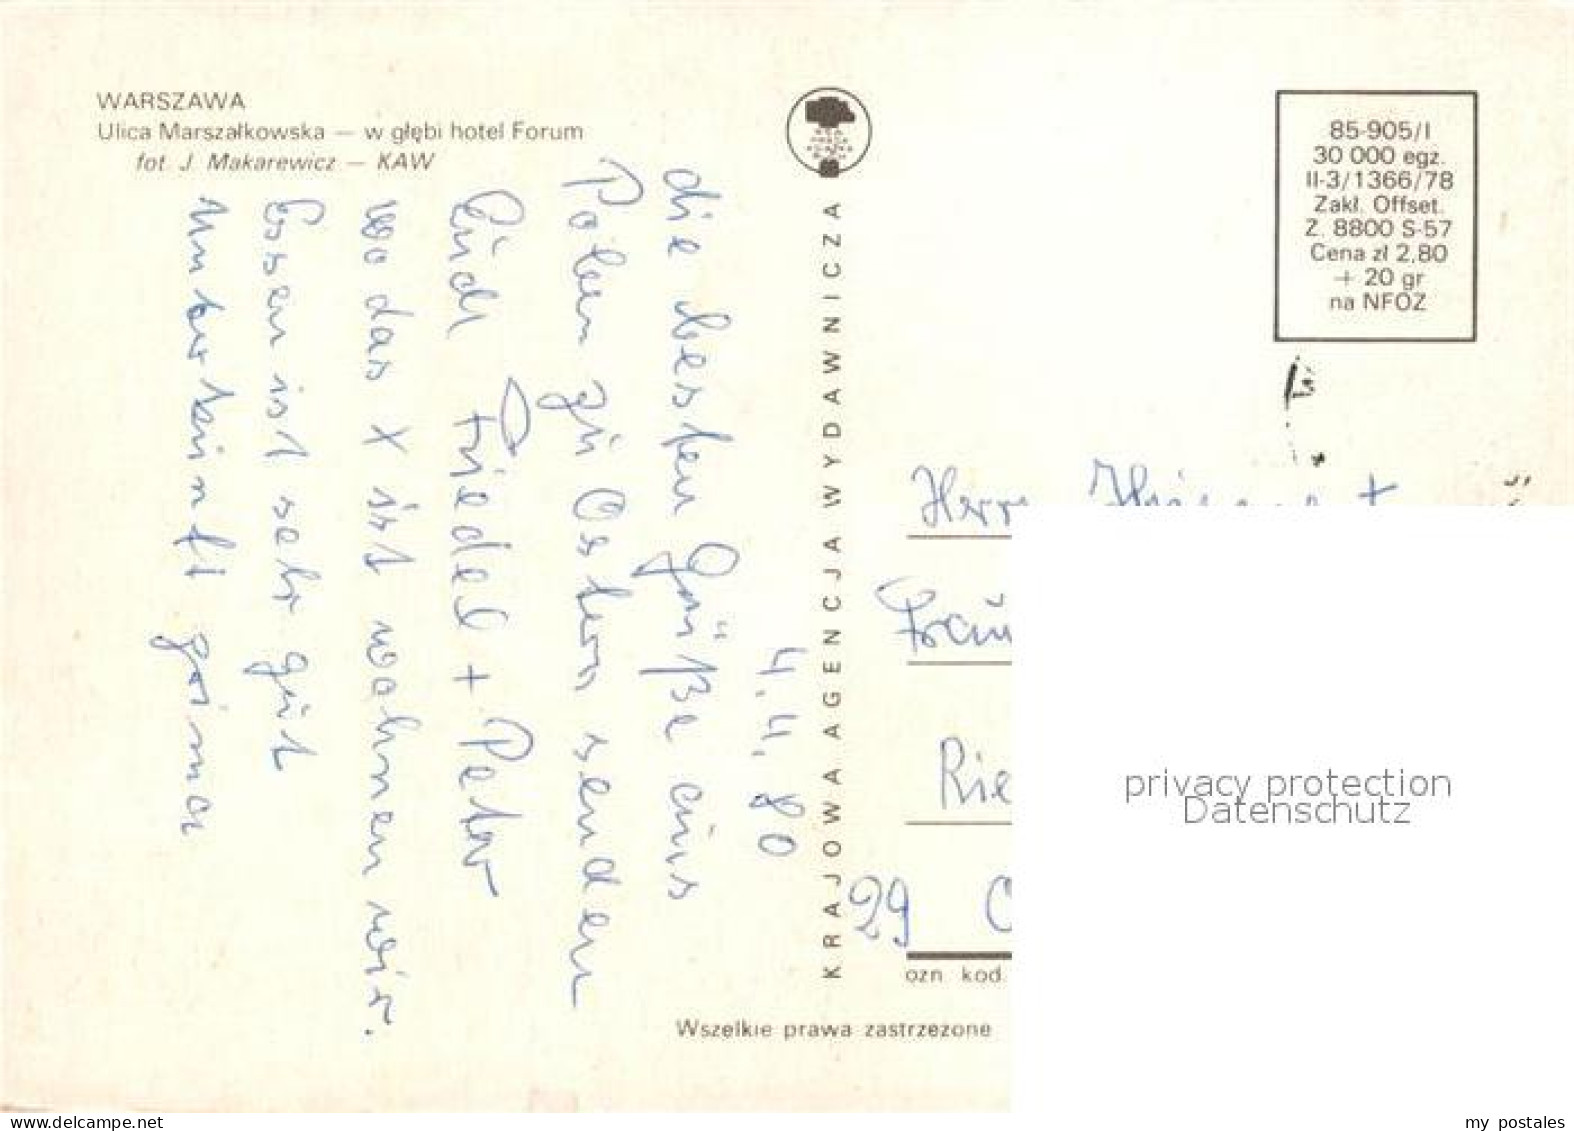 WARSZAWA
Ulica Marszałkowska — w głębi hotel Forum
fot. J. Makarewicz — KAW
4.4.80
die besten Grüße aus
Polen zu Ostern senden
Euch Friedel + Peter
wo das X ist wohnen wir.
Essen ist sehr gut
Unterkünft prima
KRAJOWA AGENCJA WYDAWNICZA
85-905/I
30 000 egz.
II-3/1366/78
Zakł. Offset.
Z. 8800 S-57
Cena zł 2,80
+ 20 gr
na NFOZ
Herrn
Frau
Rie
29 O
ozn. kod.
Wszelkie prawa zastrzeżone
privacy protection
Datenschutz
www.delcampe.net
my_postales